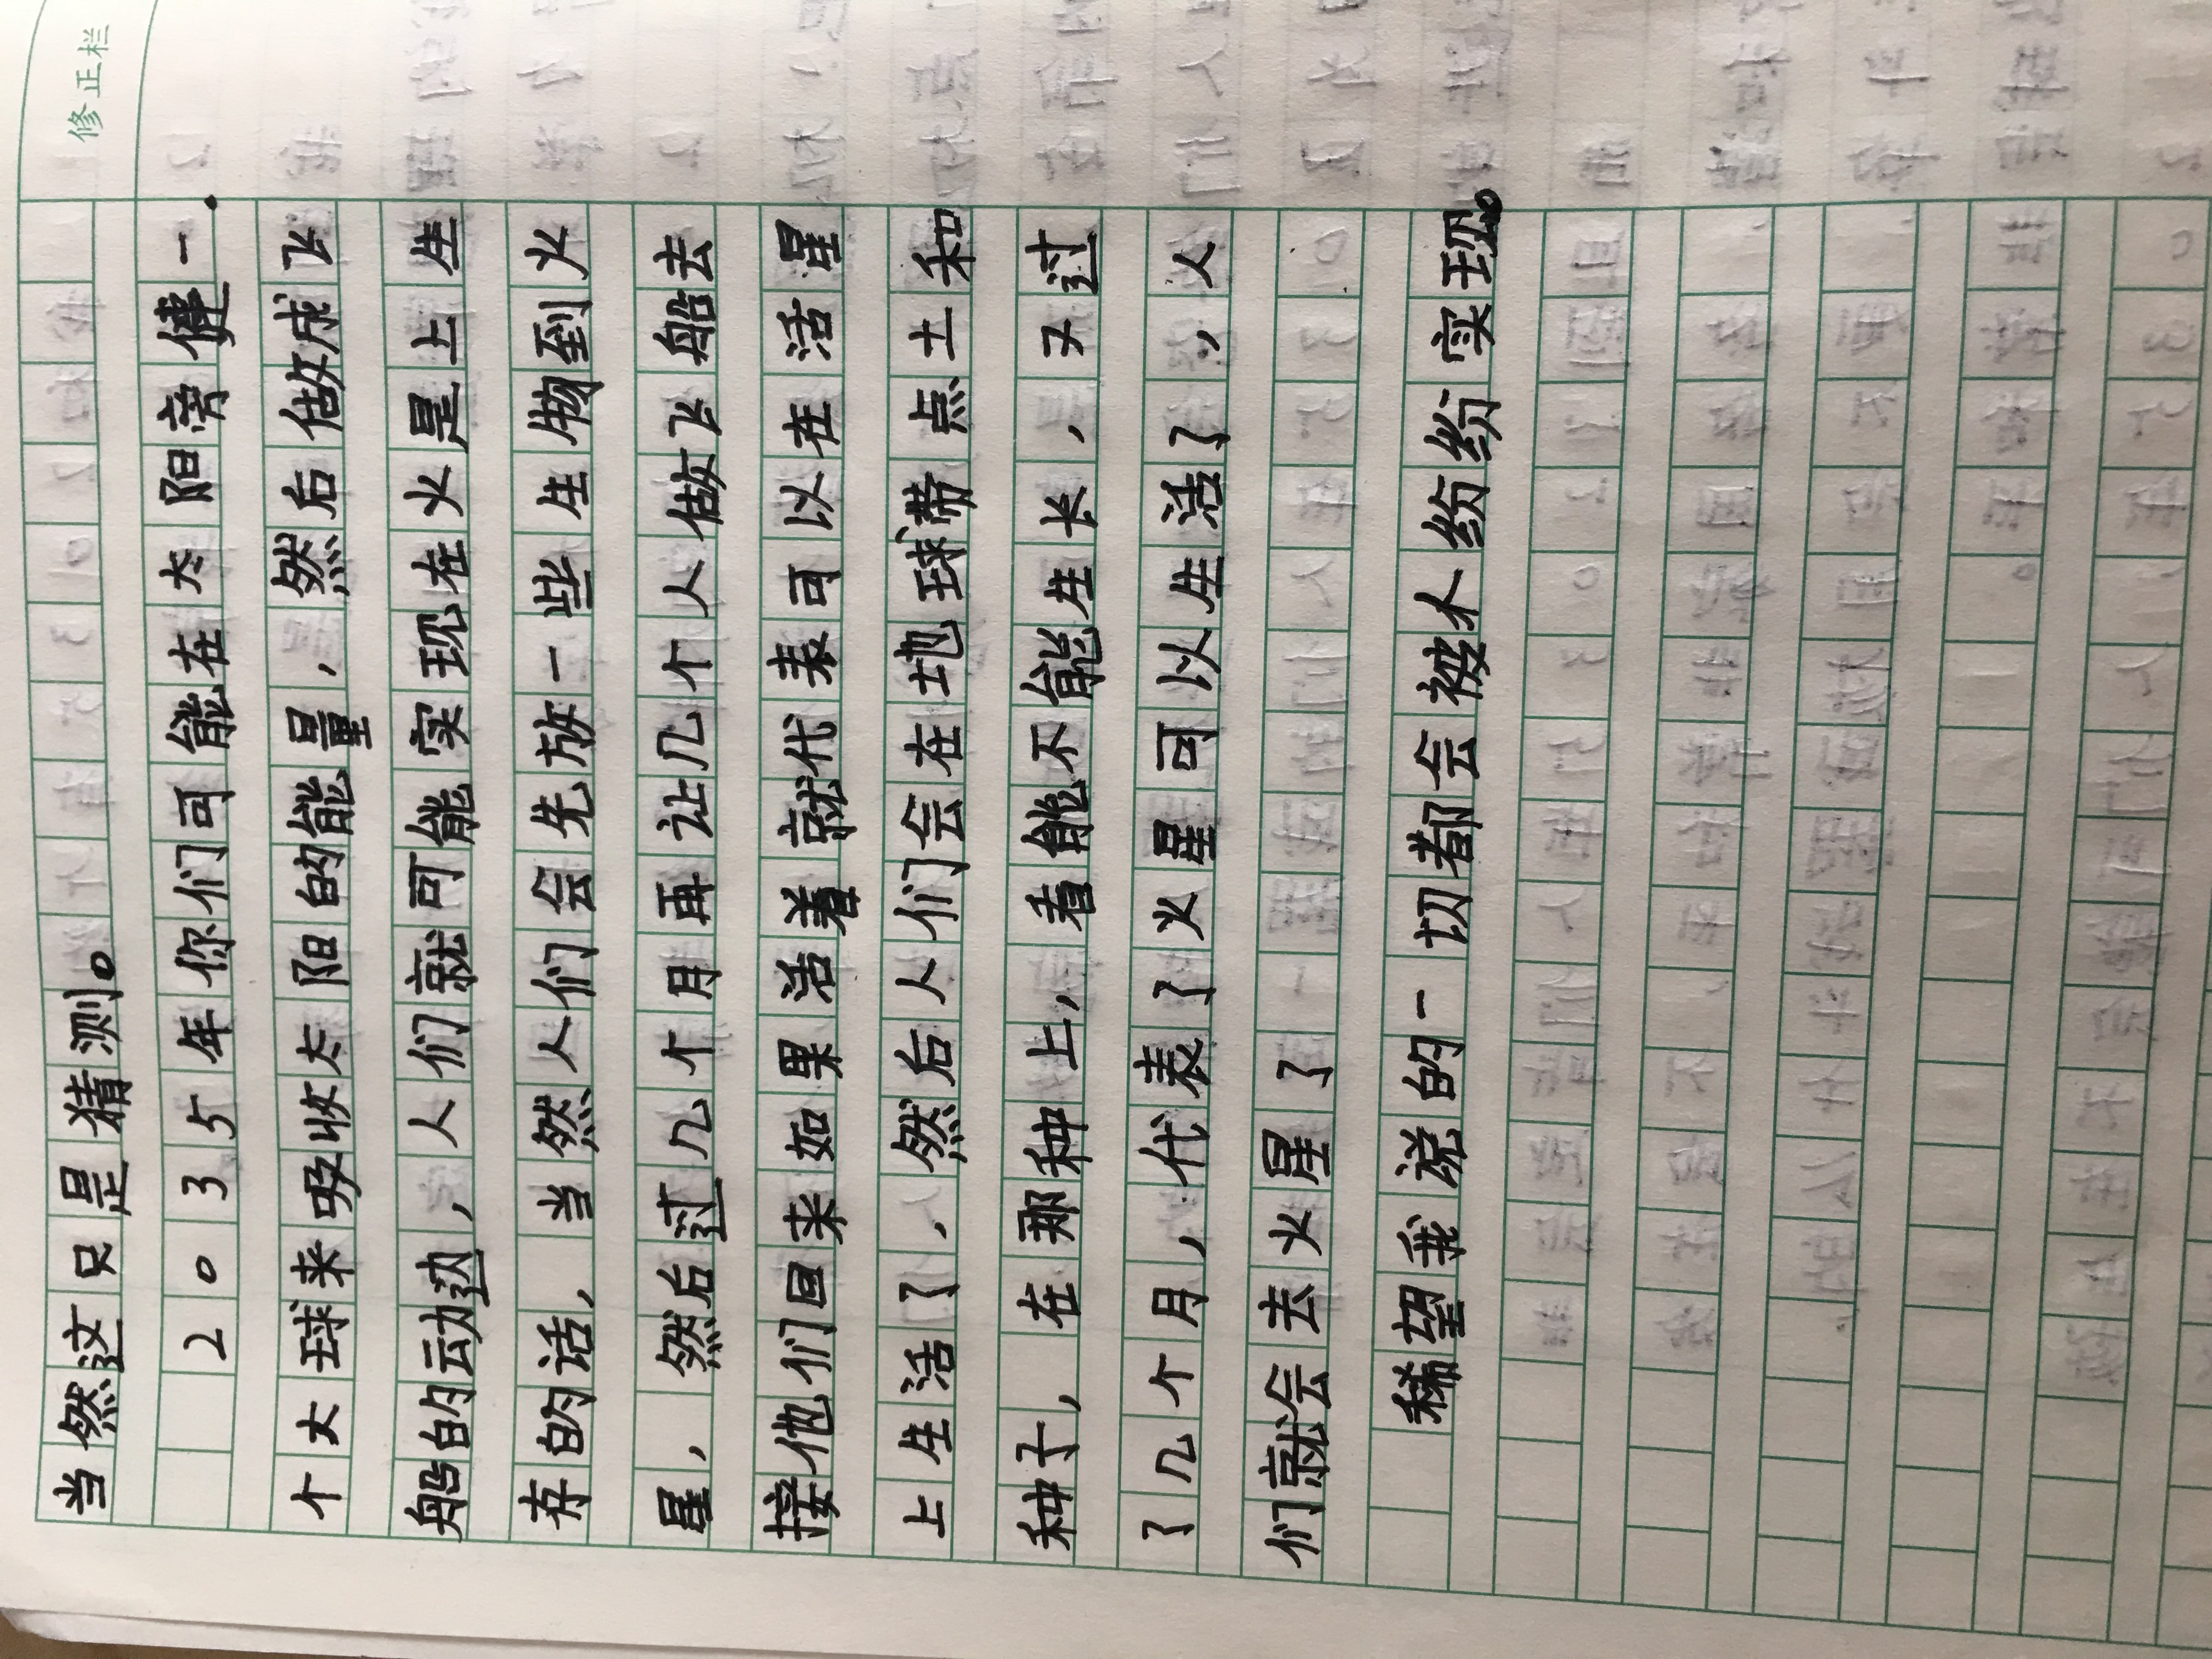 修正栏
当然这只是猜测。
2035年你们可能在太阳旁健一
个大球来吸收太阳的能量,然后做成飞
船的动边,人们就可能实现在火星上生
存的话,当然人们会先放一些生物到火
星,然后过几个月再让几个人做飞船去
接他们回来如果活着就代表可以在活星
上生活了,然后人们会在地球带点土和
种子,在那种上,看能不能生长,又过
了几个月,代表了火星可以生活了,人
们就会去火星了
稀望我说的一切都会被人纷纷实现。